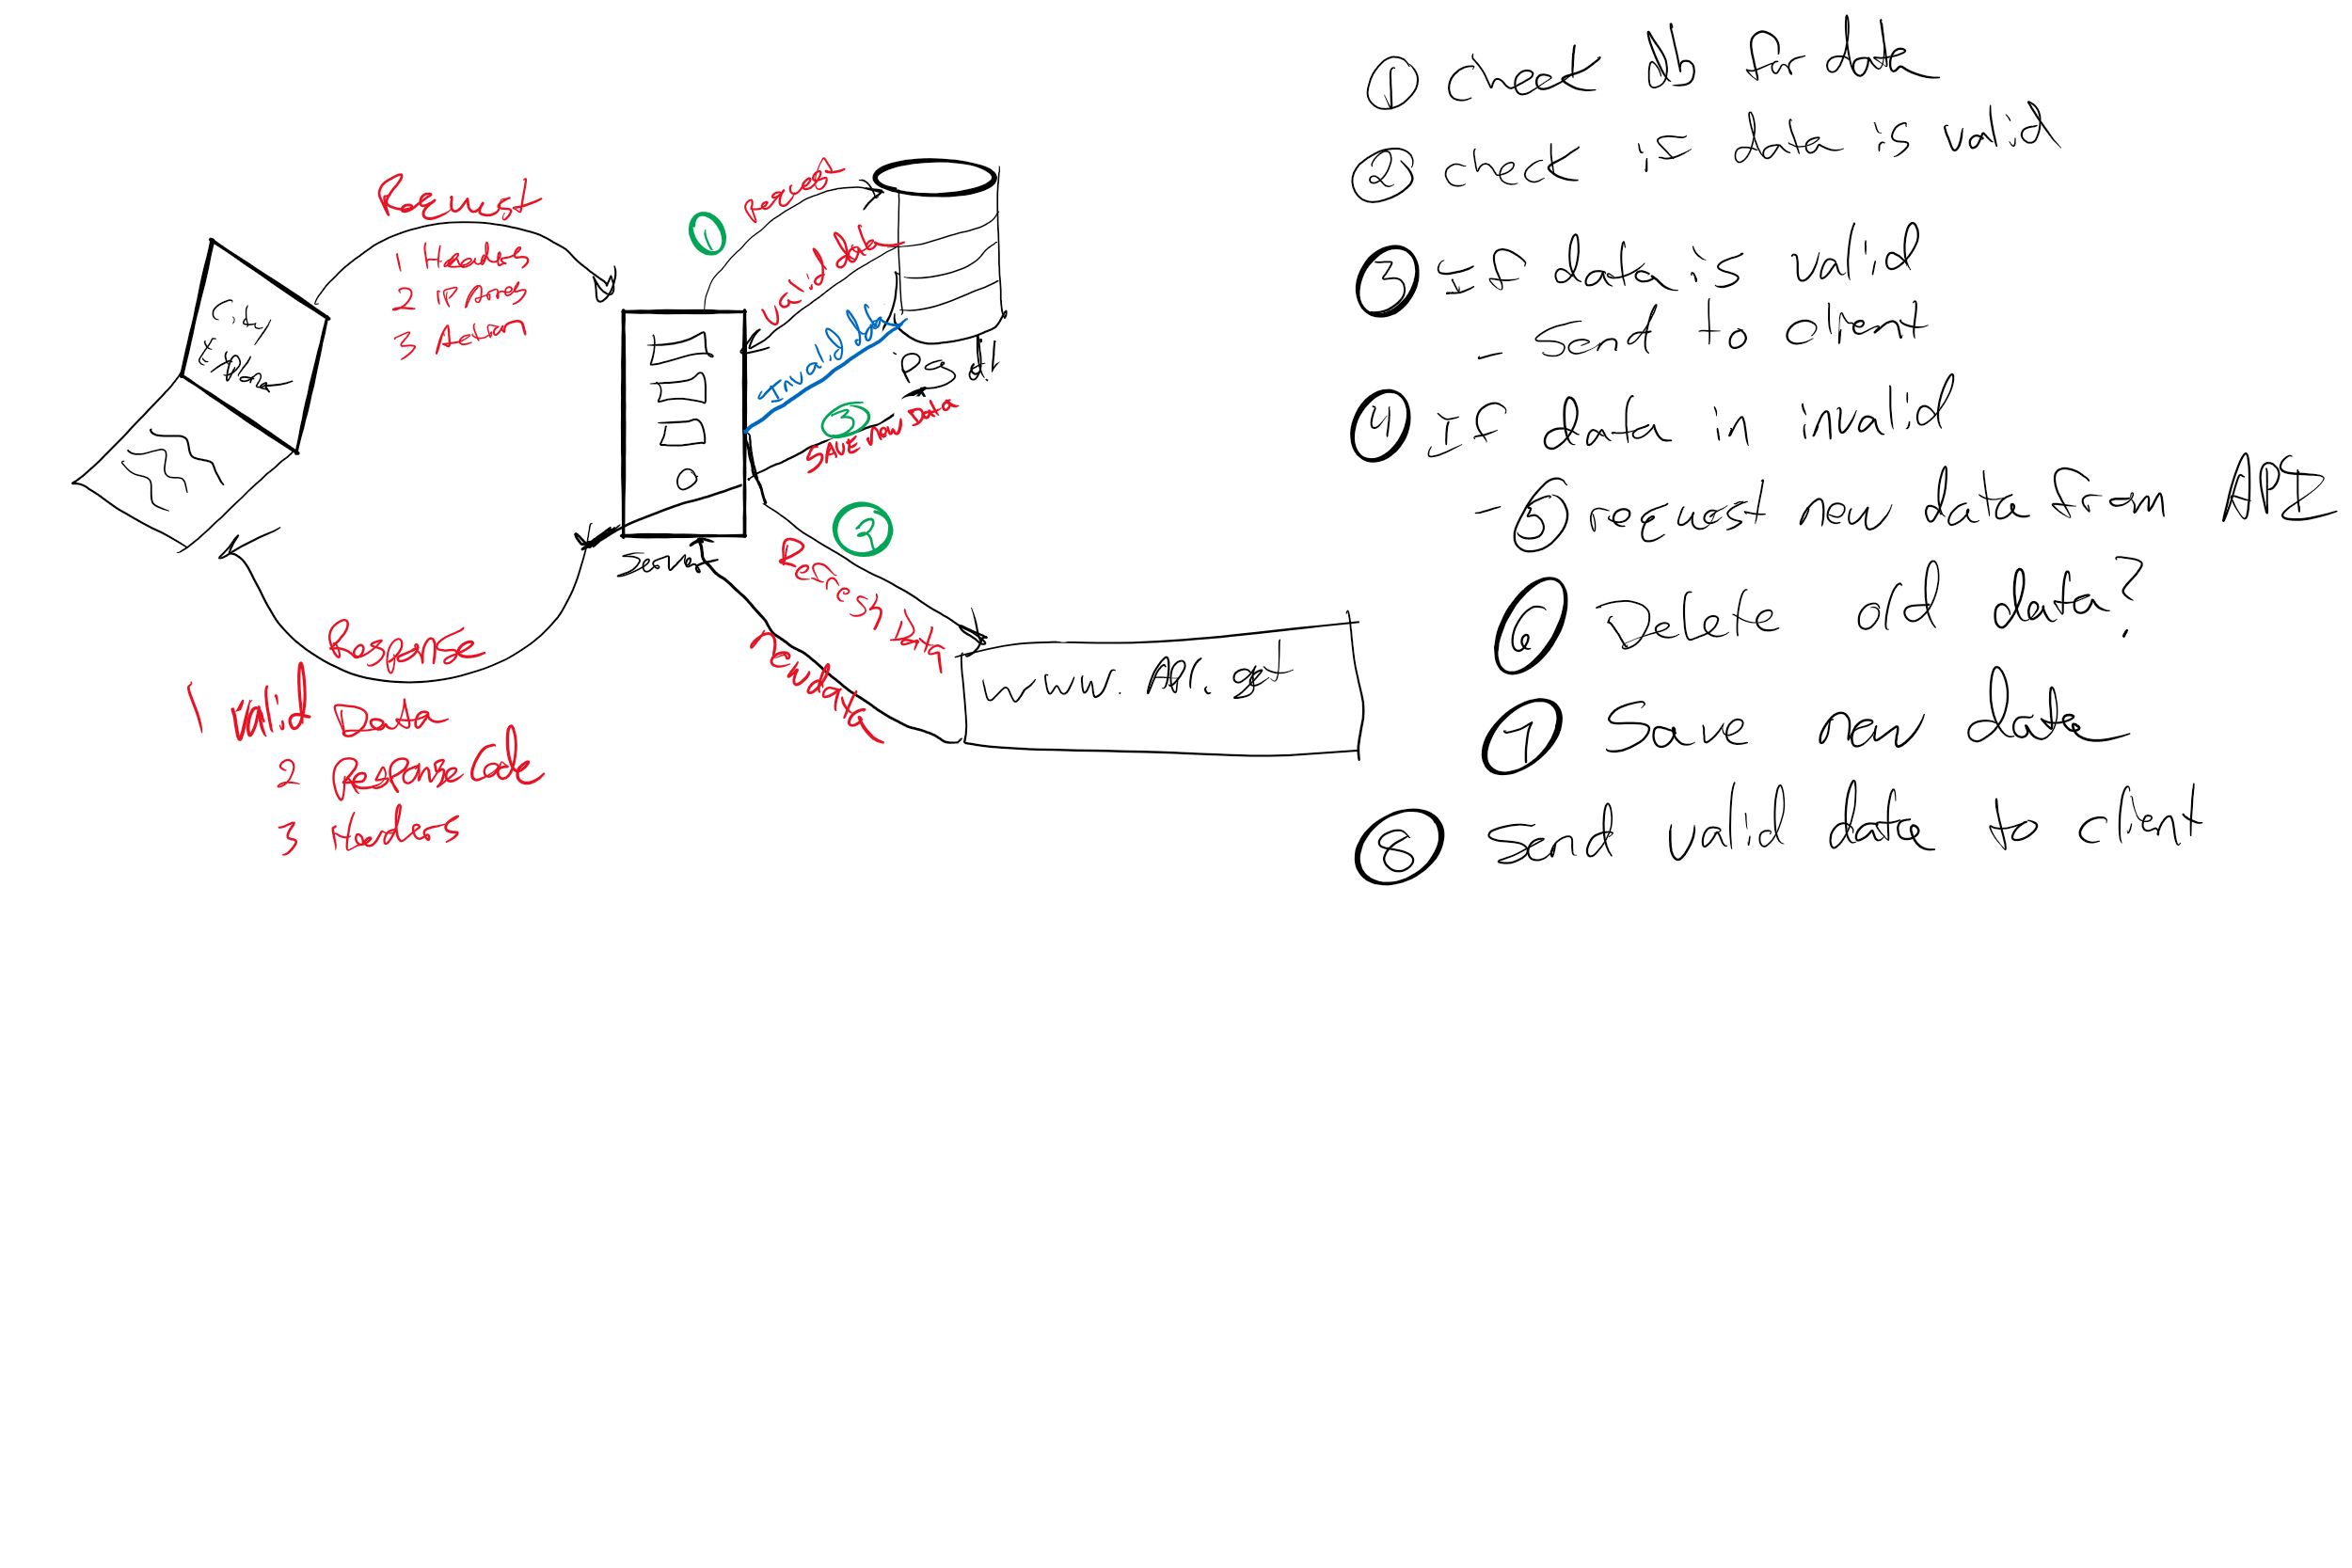 Request
1 Headers
2 IP Adres
3 Action
City
Explorer
① request
valid data
Invalid data
pg db
③
SAVE new Data
Server
②
Refresh Data
new data
www. API. get
Response
1 valid Data
2 Response Code
3 Headers
① check db for data
② check if data is valid
③ If data is valid
- Send to client
④ If data in invalid
- ⑤ request new data from API
⑥ Delete old data?
⑦ Save new data
⑧ Send valid data to client